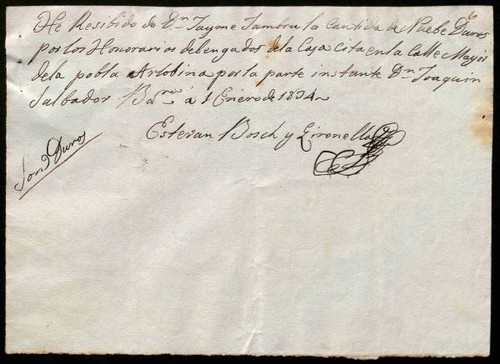 He Resibido de Dn. Jayme Tambra la Cantida de Nuebe Duros
por los Honorarios debengados de la Casa cita en la Calle Mayor
de la pobla por la parte instante Dn. Joaquin
Salbador Bar.na á 1 Enero de 1834
Estevan Bosch y Gironella
Son 9 Duros